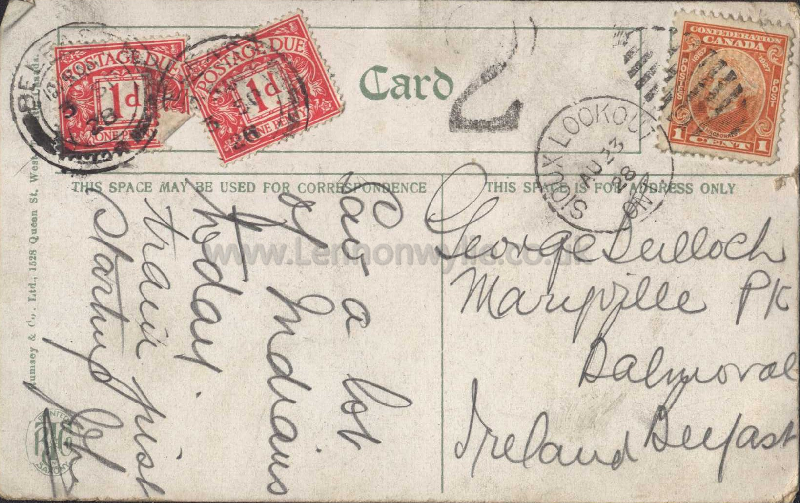 POSTAGE DUE
1d
ONE PENNY
POSTAGE DUE
1d
ONE PENNY
Card
2
CONFEDERATION
CANADA
1 CENT 1
SIOUX LOOKOUT
AU 23
28
ONT
THIS SPACE MAY BE USED FOR CORRESPONDENCE
THIS SPACE IS FOR ADDRESS ONLY
Saw a lot
of Indians
today
train just
starting
John
George Bulloch
Maryville PK
Balmoral
Ireland Belfast
Rumsey & Co., Ltd., 1528 Queen St. West
www.Lennonwylie.co.uk